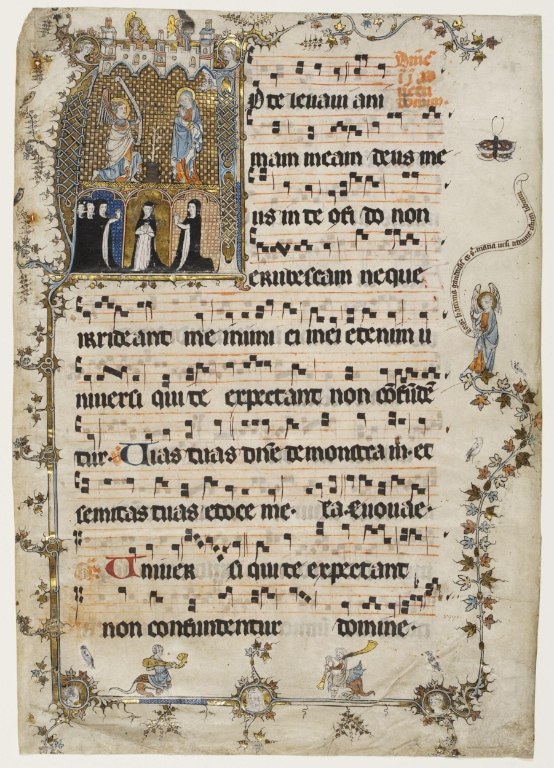 D te leuaui ani
mam meam deus me
us in te cōfi do non
erubescam neque
irrideant me inimi ci mei etenim u
niuersi qui te expectant non cōfundē
tur· Uias tuas dn̄e demonstra m̄· et
semitas tuas edoce me· euouae·
Uniuer si qui te expectant
non confundentur domine·